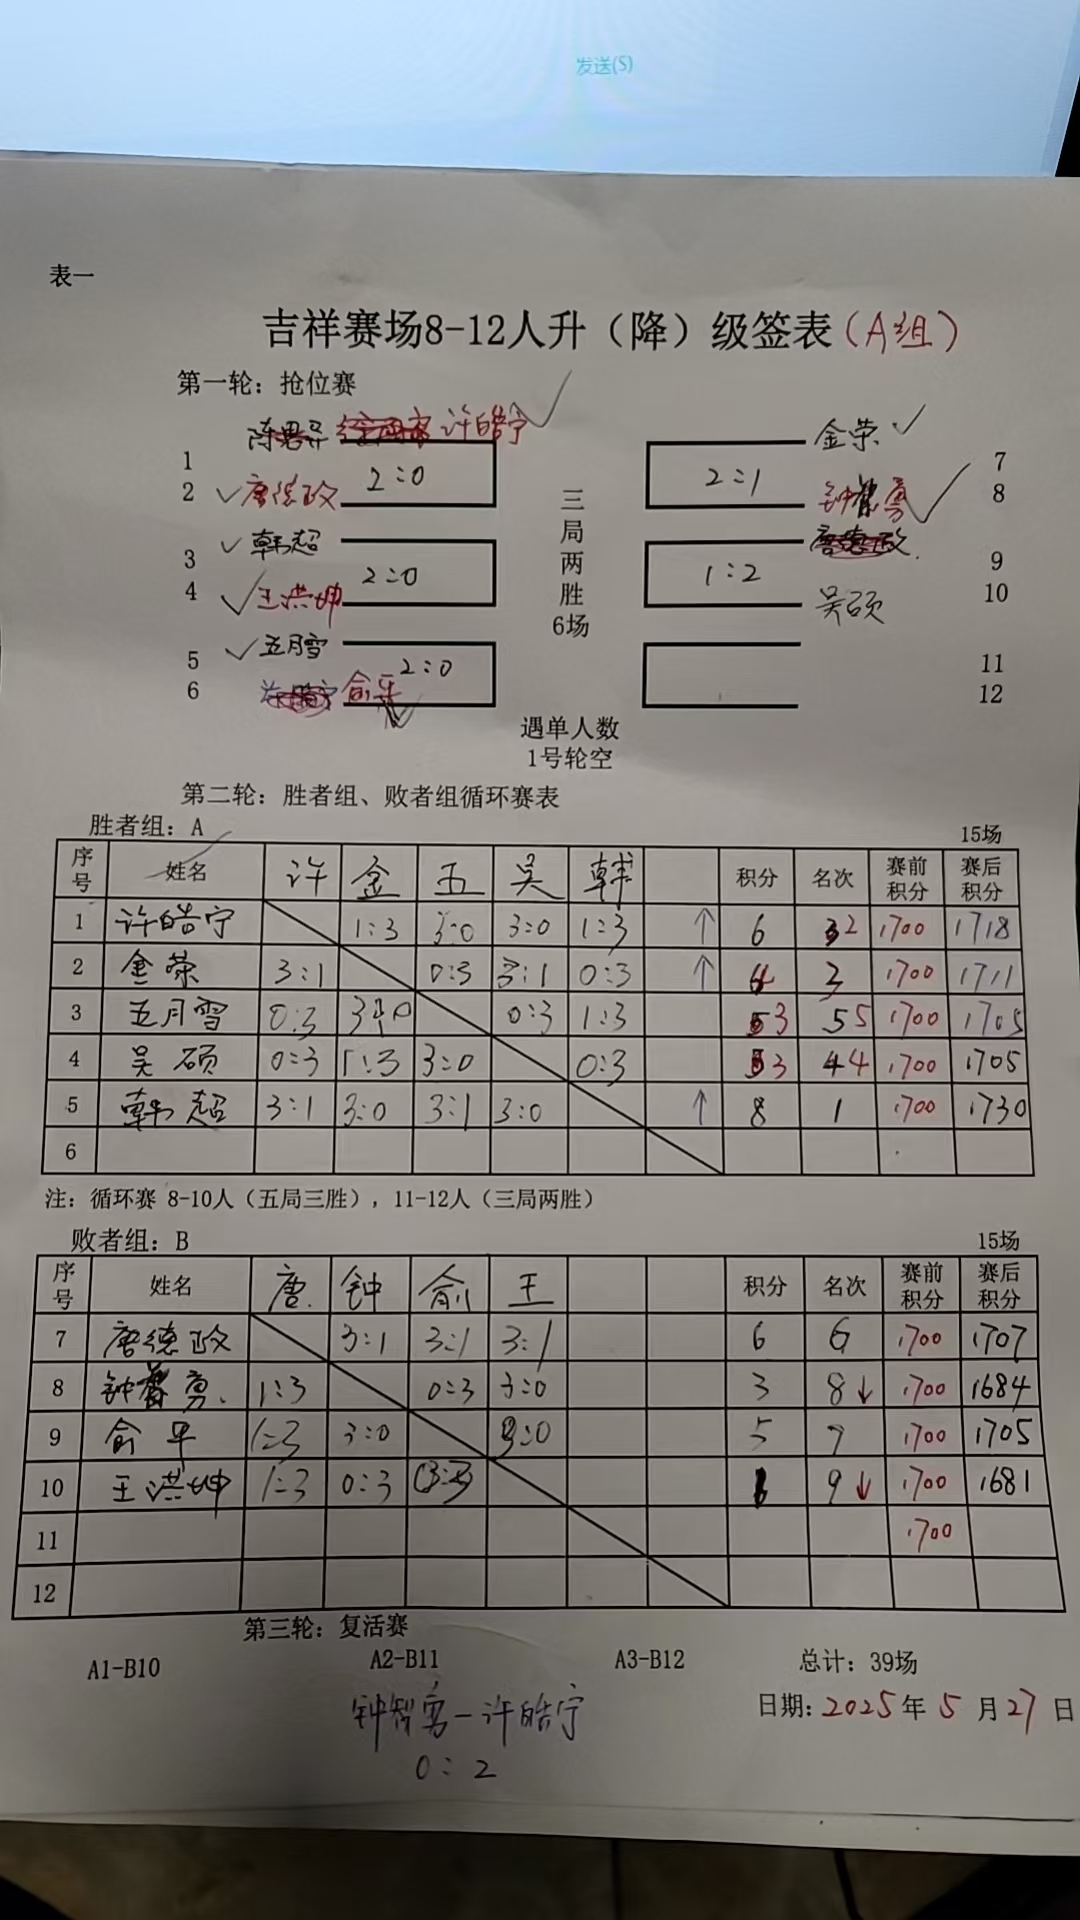 发送(S)
表一
吉祥赛场8-12人升（降）级签表（A组）
第一轮：抢位赛
许皓宁
1
2 唐德政 2:0
3 韩超
4 王洪坤 2:0
5 五月雪
6 俞平 2:0
三局两胜
6场
金荣 7
2:1
钟智勇 8
9
1:2
吴硕 10
11
12
遇单人数
1号轮空
第二轮：胜者组、败者组循环赛表
胜者组：A 15场
序号 姓名 许 金 五 吴 韩 积分 名次 赛前积分 赛后积分
1 许皓宁 1:3 3:0 3:0 1:3 ↑ 6 2 1700 1718
2 金荣 3:1 0:3 3:1 0:3 ↑ 3 1700 1711
3 五月雪 0:3 0:3 1:3 3 5 5 1700 1705
4 吴硕 0:3 1:3 3:0 0:3 3 4 4 1700 1705
5 韩超 3:1 3:0 3:1 3:0 ↑ 8 1 1700 1730
6
注：循环赛 8-10人（五局三胜），11-12人（三局两胜）
败者组：B 15场
序号 姓名 唐 钟 俞 王 积分 名次 赛前积分 赛后积分
7 唐德政 3:1 3:1 3:1 6 6 1700 1707
8 钟智勇 1:3 0:3 3:0 3 8↓ 1700 1684
9 俞平 1:3 3:0 3:0 5 7 1700 1705
10 王洪坤 1:3 0:3 9↓ 1700 1681
11 1700
12
第三轮：复活赛
A1-B10 A2-B11 A3-B12 总计：39场
钟智勇-许皓宁
0:2
日期：2025年5月27日